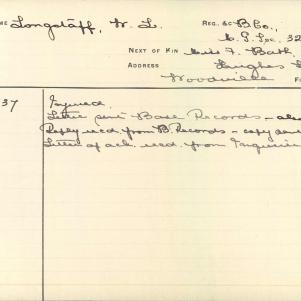 ME Longstaff, W. L. REG. &C B Co.,
32
NEXT OF KIN Miss F. Bath,
ADDRESS Hughes
Woodville F
37 Injured.
Letter sent Base Records – also
Reply recd. from B. Records – copy sent
Letter of ack. recd. from Enquirer